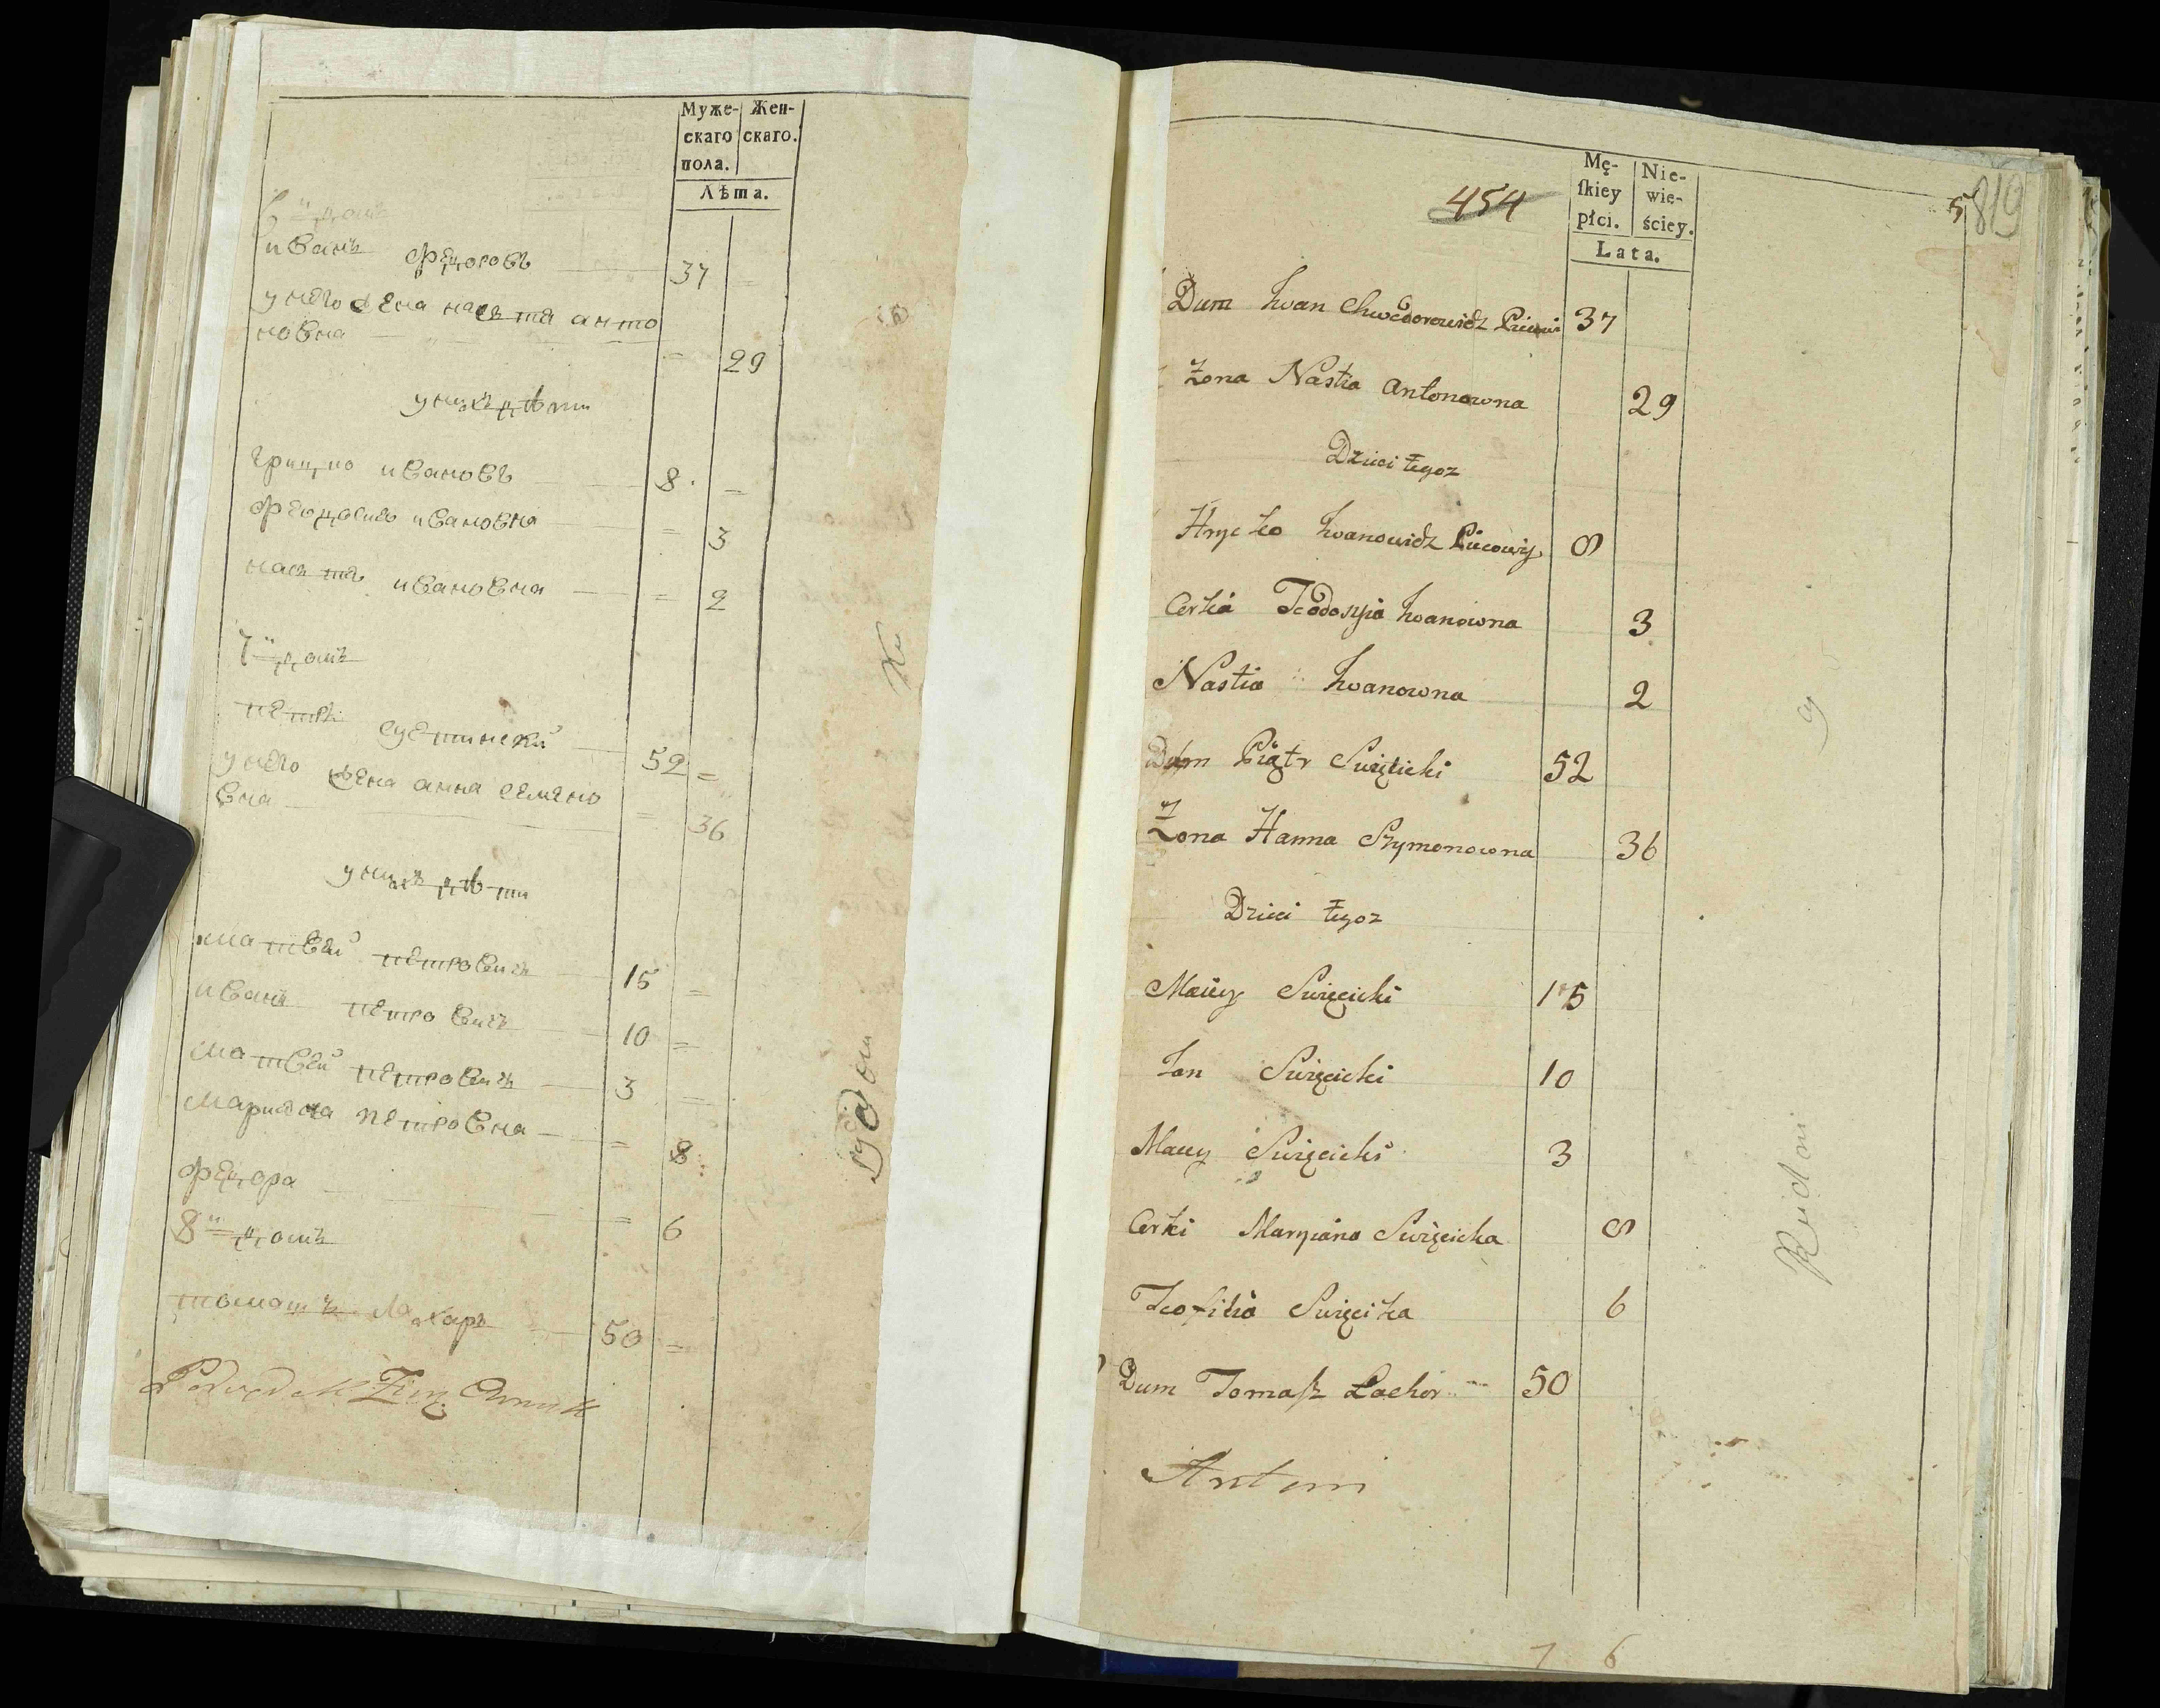 Муже-
скаго
пола.
Жен-
скаго.
Лѣта.
6 й домъ
иванъ Федоровъ 37 =
у него жена настя анто
новна = 29
у нихъ дѣти
грицко ивановъ 8 =
Феодосия ивановна = 3
настя ивановна = 2
7 й домъ
петръ 52 =
у него жена анна семено
вна = 36
у нихъ дѣти
матвей петровичъ 15 =
иванъ петровичъ 10 =
матвей петровичъ 3 =
марияна петровна = 8
Федора = 6
8 й домъ
томашъ Лахаръ 50 =
454
5
819
Mę-
ſkiey
płci.
Nie-
wie-
ściey.
Lata.
Dum Iwan Chwedorowicz 37
Żona Nastia Antonowna 29
Dzieci tegoz
Hrycko Iwanowicz 8
Corka Teodosyia Iwanowna 3
Nastia Iwanowna 2
Dum Piątr Swięcicki 52
Żona Hanna Szymonowna 36
Dzieci tegoz
Maciey Swięcicki 15
Jan Swięcicki 10
Maciey Swięcicki 3
Corki Maryiana Swięcicka 8
Teofilia Swięcicka 6
Dum Tomaſz Lachor 50
Antoni
7 6